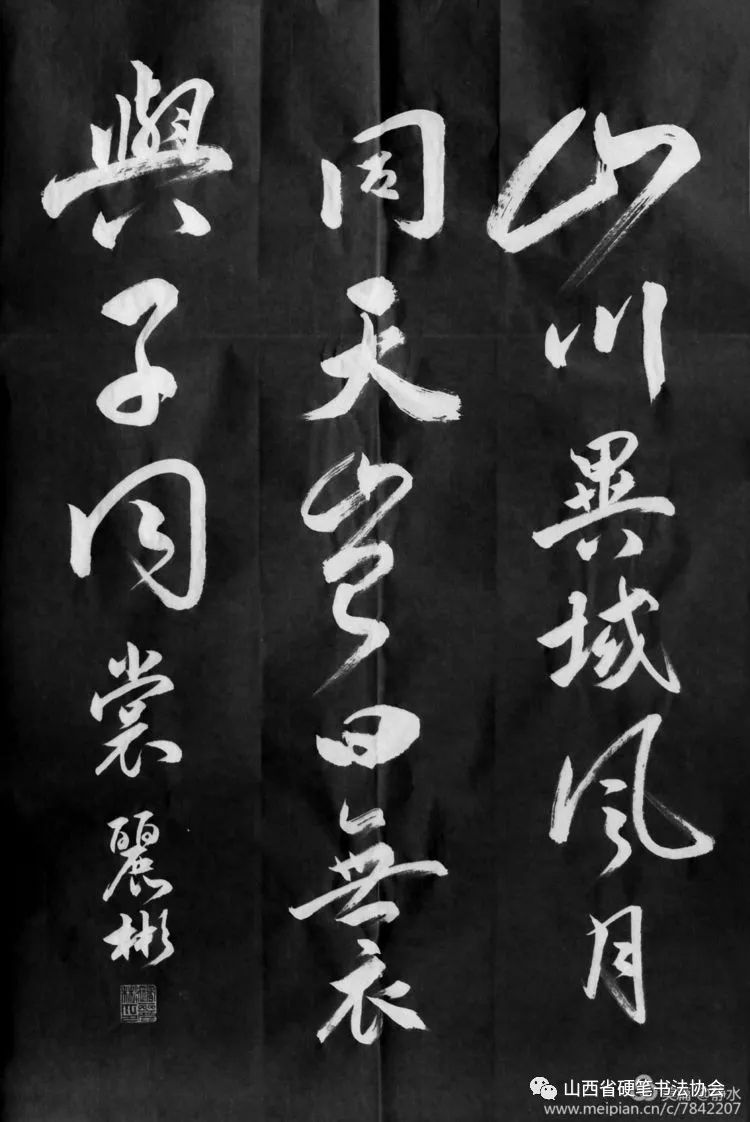 山川異域風月
同天豈曰無衣
與子同裳麗彬
山西省硬笔书法协会
www.meipian.cn/c/7842207